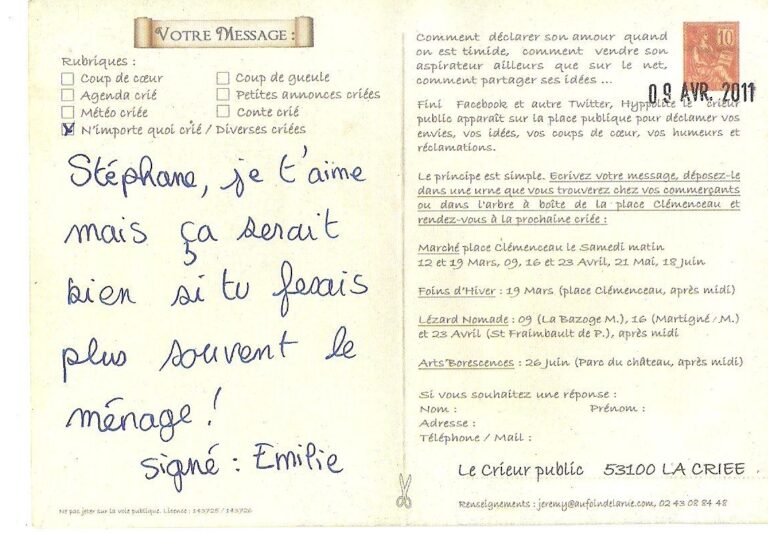 VOTRE MESSAGE :
Rubriques :
Coup de cœur
Coup de gueule
Agenda crié
Petites annonces criées
Météo criée
Conte crié
N'importe quoi crié / Diverses criées
Stéphane, je t'aime
mais ça serait
bien si tu fesais
plus souvent le
ménage !
signé : Emilie
Ne pas jeter sur la voie publique. Licence : 143725 / 143726
Comment déclarer son amour quand
on est timide, comment vendre son
aspirateur ailleurs que sur le net,
comment partager ses idées ...
10
09 AVR. 2011
Fini Facebook et autre Twitter, Hyppolite le crieur
public apparaît sur la place publique pour déclamer vos
envies, vos idées, vos coups de cœur, vos humeurs et
réclamations.
Le principe est simple. Ecrivez votre message, déposez-le
dans une urne que vous trouverez chez vos commerçants
ou dans l'arbre à boîte de la place Clémenceau et
rendez-vous à la prochaine criée :
Marché place Clémenceau le Samedi matin
12 et 19 Mars, 09, 16 et 23 Avril, 21 Mai, 18 Juin
Foins d'Hiver : 19 Mars (place Clémenceau, après midi)
Lézard Nomade : 09 (La Bazoge M.), 16 (Martigné / M.)
et 23 Avril (St Fraimbault de P.), après midi
Arts'Borescences : 26 Juin (Parc du château, après midi)
Si vous souhaitez une réponse :
Nom : Prénom :
Adresse :
Téléphone / Mail :
Le Crieur public 53100 LA CRIEE
Renseignements : jeremy@aufoindelarue.com, 02 43 08 84 48